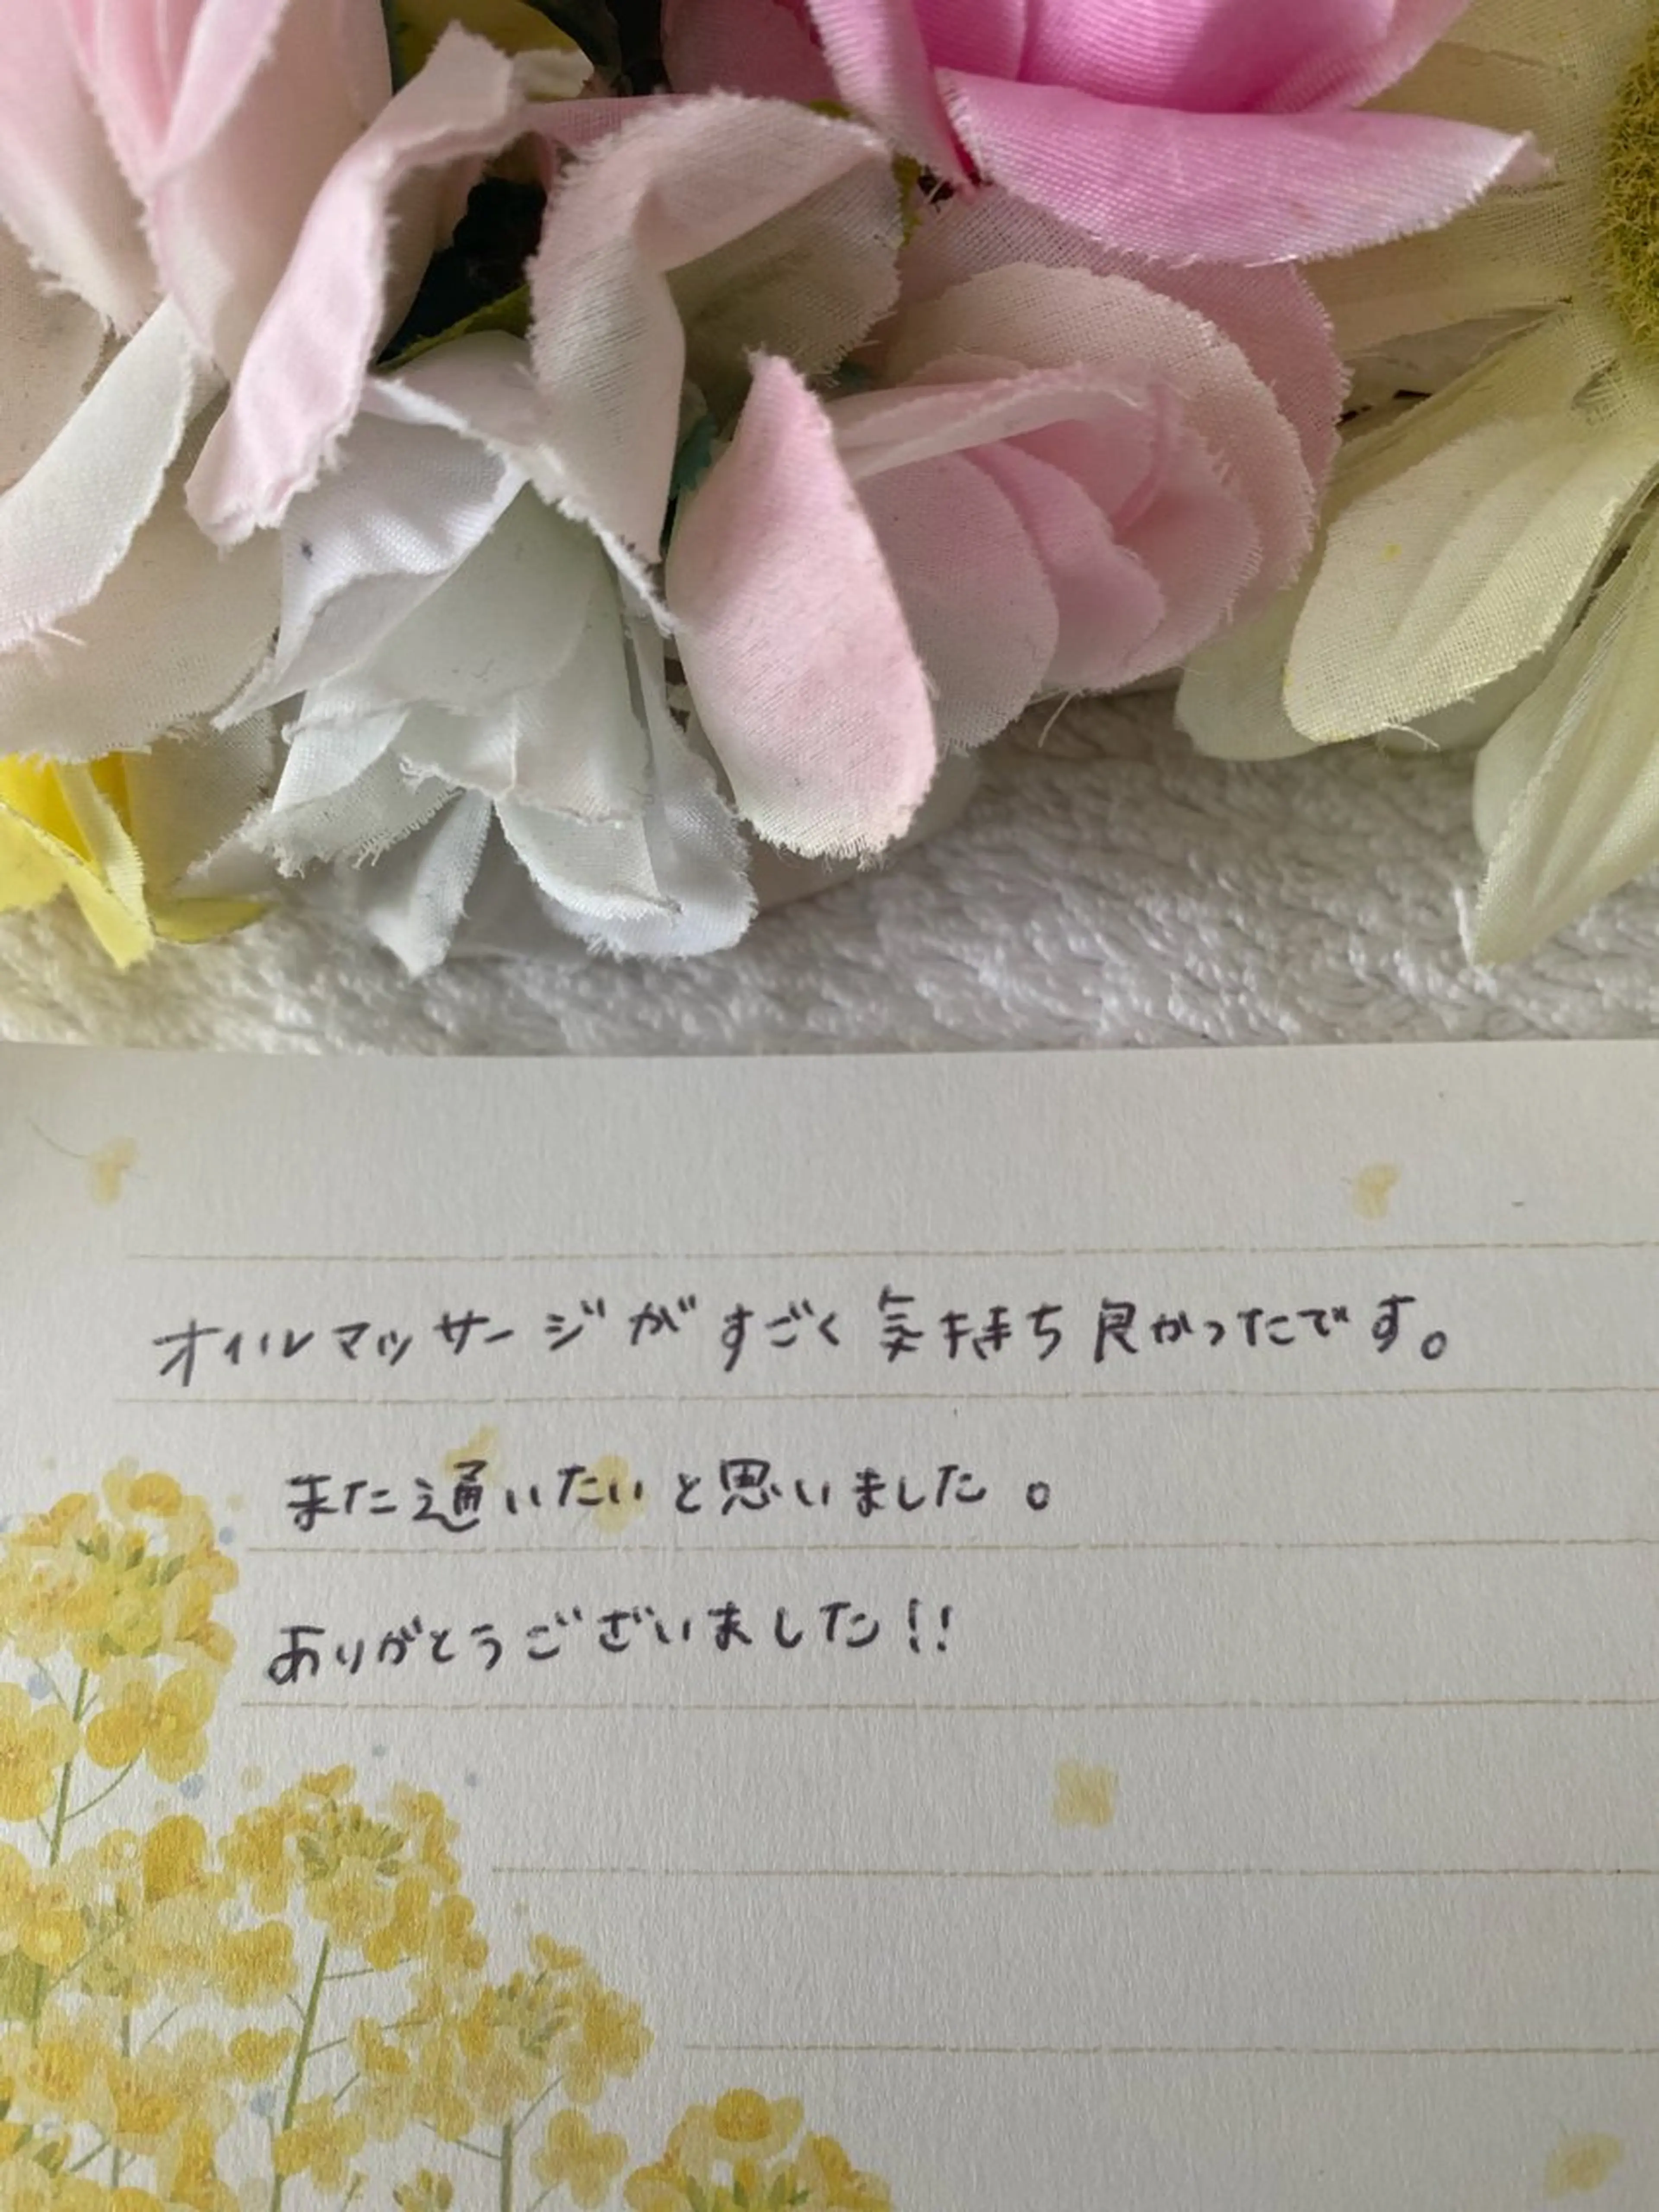 オイルマッサージがすごく気持ち良かったです。
また通いたいと思いました。
ありがとうございました!!